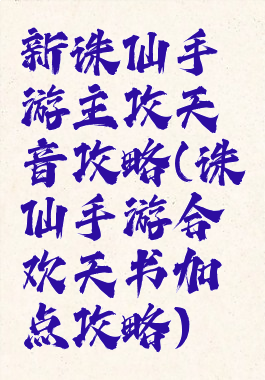 新诛仙手
游主攻天
音攻略(诛
仙手游合
欢天书加
点攻略)